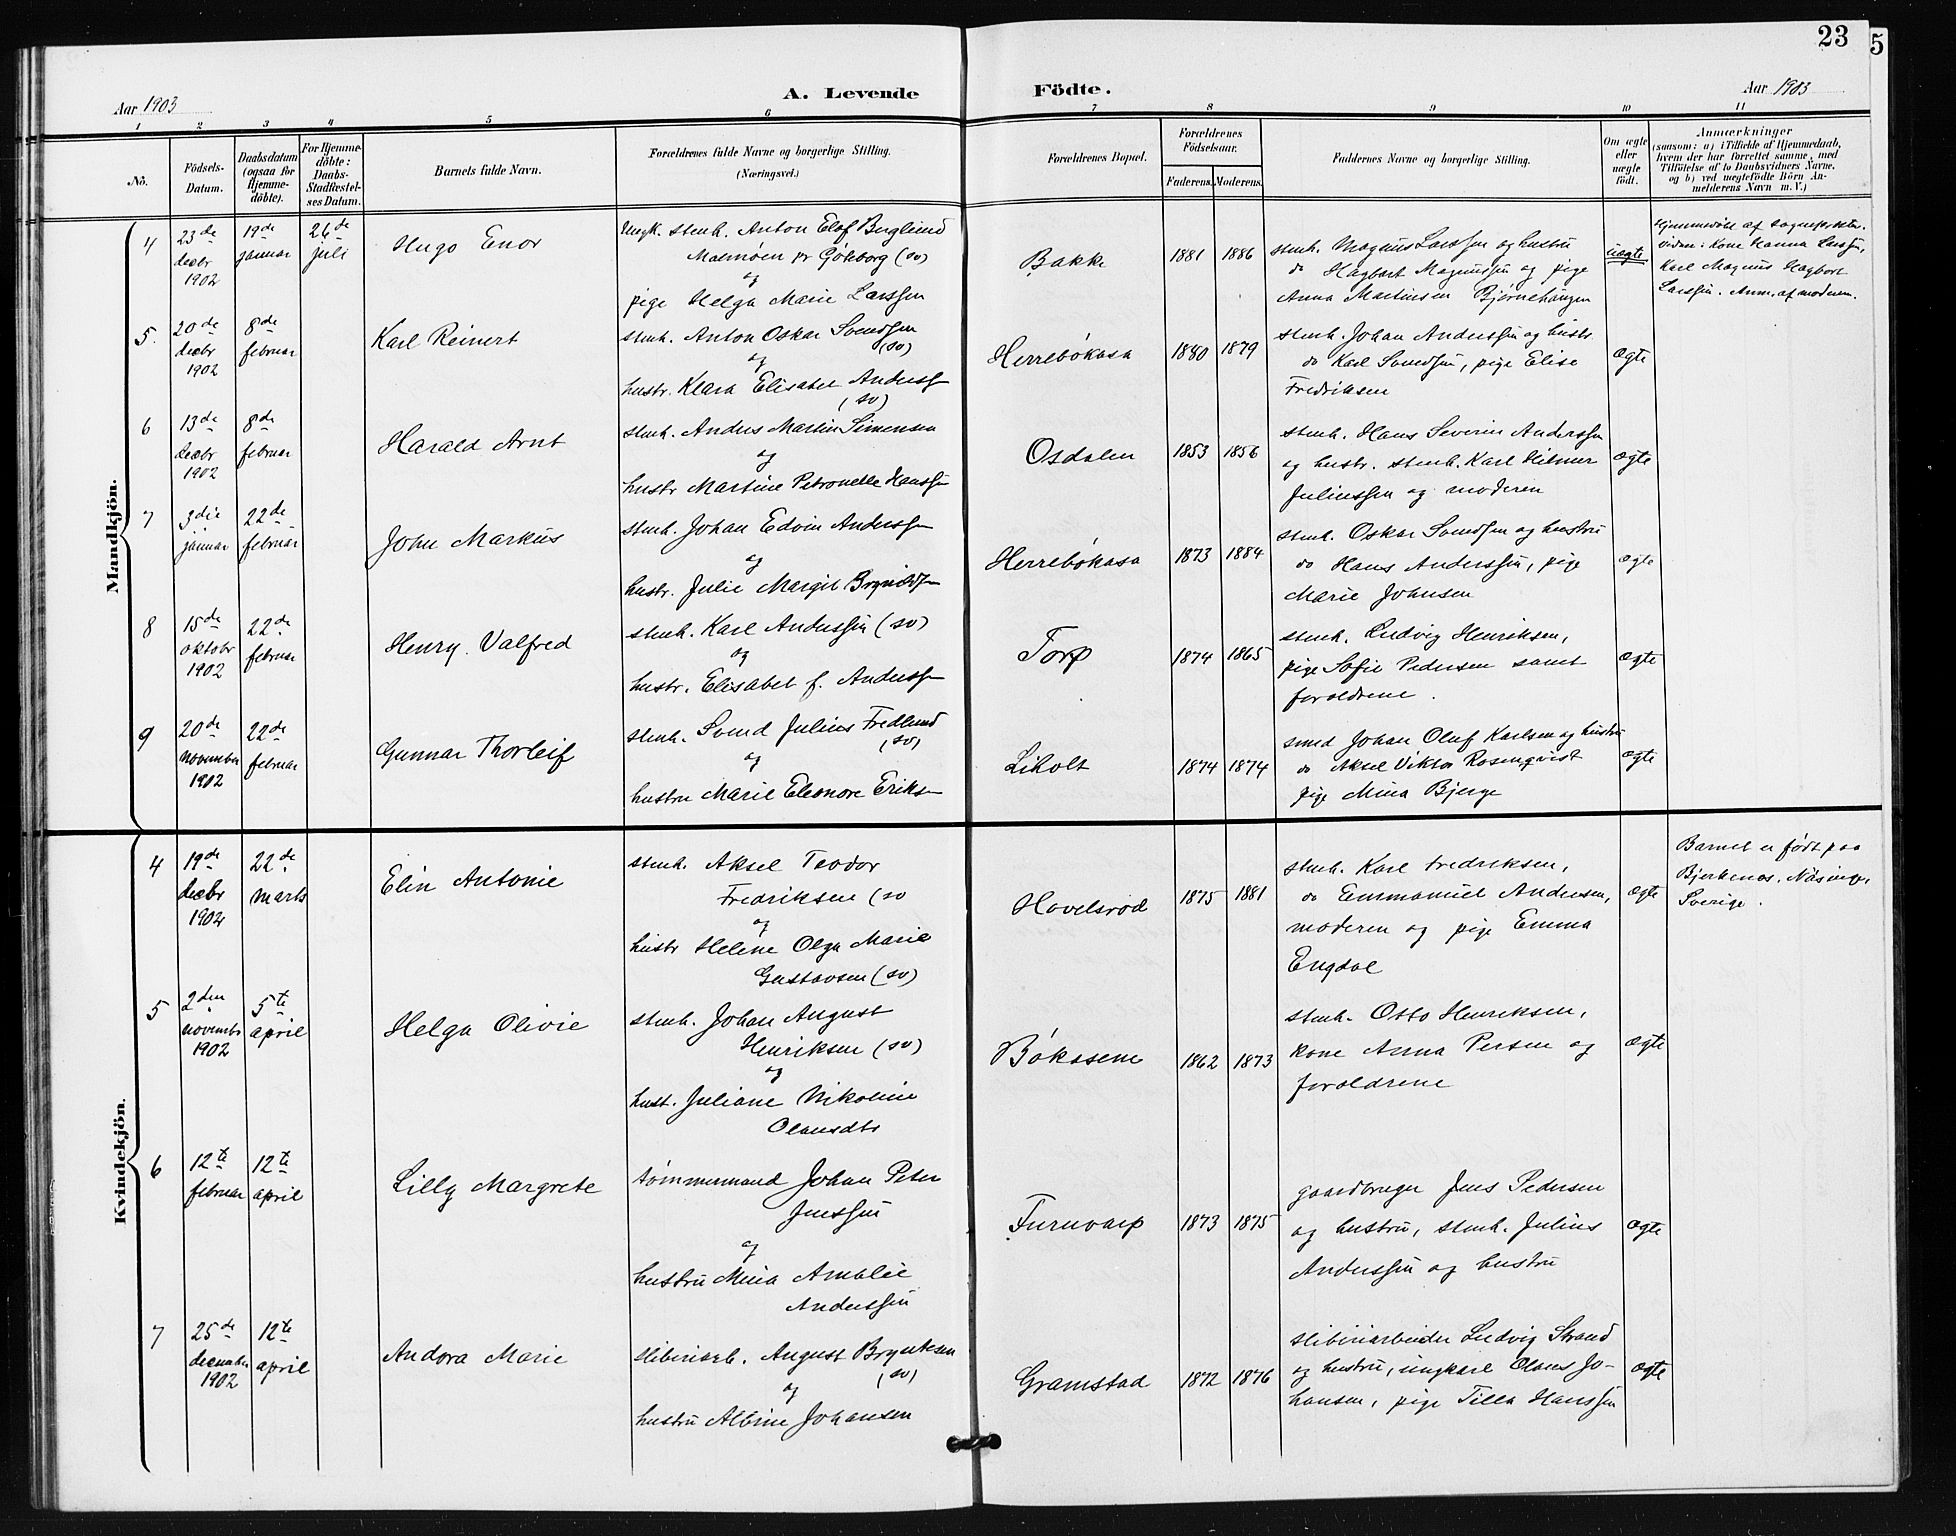 23
5
Aar 1903
A. Levende
Födte.
Aar 1903
1 2 3 4 5 6 7 8 9 10 11
No.
Födsels-
Datum.
Daabsdatum
(ogsaa for
Hjemme-
döbte).
For Hjemme-
döbte:
Daabs-
Stadfæstel-
ses Datum.
Barnets fulde Navn.
Forældrenes fulde Navne og borgerlige Stilling.
(Næringsvei.)
Forældrenes Bopæl.
Forældrenes
Födselsaar.
Faderens. Moderens.
Faddernes Navne og borgerlige Stilling.
Om ægte
eller
uægte
födt.
Anmærkninger
(saasom: a) i Tilfælde af Hjemmedaab,
hvem der har forrettet samme, med
Tilföielse af to Daabsvidners Navne.
og b) ved uægtefödte Börn An-
melderens Navn m. V.)
Mandkjön.
4
23de
decbr
1902
19de
januar
26de
juli
Hugo Enor
Ungk. stenh. Anton Elof Berglund
Malmøen pr Göteborg (sv)
og
pige Helga Marie Larssen
Bakke
1881
1886
stenh. Magnus Larssen og hustru
do Hagbart Magnussen og pige
Anna Martinsen Bjørnehaugen
uægte
Hjemmedøbt af
Kone Hanna Larssen,
Karl Magnus Hagbart
Larssen. Anm. af moderen.
5.
20de
decbr
1902
8de
februar
Karl Reinert
stenh. Anton Oskar Svendsen
(sv)
og
hustr. Klara Elisabet Anderss
(sv)
Herrebøkasa
1880
1879
stenh. Johan Anderssen og hustr.
do Karl Svendsen, pige Elise
Fredriksen
ægte
6
13de
decbr
1902
8de
februar
Harald Arnt
stenh. Anders Martin Simensen
og
hustr Martine Petronelle Hanssen
Osdalen
1853
1856
stenh. Hans Severin Anderssen
og hustr. stenh. Karl Hilmer
Juliussen og moderen
ægte
7
3die
januar
22de
februar
John Markus
stenh. Johan Edvin Anderssen
og
hustr. Julie Margit Bryn
Herrebøkasa
1873
1884
stenh. Oskar Svendsen og hustru
do Hans Anderssen, pige
Marie Johnsen
ægte
8
15de
oktobr
1902
22de
februar
Henry Valfred
stenh. Karl Anderssen (sv)
og
hustr. Elisabet f. Anderss
Torp
1874
1865
stenh. Ludvig Henriksen,
pige Sofie Pedersen samt
forældrene.
ægte
9
20de
november
1902
22de
februar
Gunnar Thorleif
stenh. Svend Julius Fredlund
(sv)
og
hustru Marie Eleonore Eriksen
Liholt
1874
1874
smed Johan Oluf Karlsen og hustru
do Aksel Viktor Rosenqvist
pige Mina Bjerge
ægte
Kvindekjön.
4
19de
decbr
1902
22de
marts
Elin Antonie
stenh. Aksel Teodor
Fredriksen (sv
og
hustr Helene Olga Marie
Gustavsen (sv)
Hovelsrød
1875
1881
stenh. Karl Fredriksen,
do Emmanuel Andersen,
moderen og pige Emma
Engdal
ægte
Barnet er født paa
Bjerkenes, Näsinge,
Sverige.
5
2den
novembr
1902
5te
april
Helga Olivie
stenh. Johan August
Henriksen (sv)
og
hust. Juliane Nikoline
Olausdtr
Bøkasene
1862
1873
stenh. Otto Henriksen,
kone Anna Persen og
forældrene
ægte
6
12te
februar
12te
april
Lilly Margrete
tømmermand Johan Peter
Jenssen
og
hustru Mina Amalie
Anderssen
Furuvarp
1873
1875
gaardbruger Jens Pedersen
og hustru, stenh. Julius
Anderssen og hustru
ægte
7
25de
december
1902
12te
april
Andora Marie
sliberiarb. August Bryntesen
(sv)
og
hustru Albine Johansen
Gramstad
1872
1876
sliberiarbeider Ludvig Strand
og hustru, ungkarl Olaus Jo-
hansen, pige Tilla Hanssen
ægte